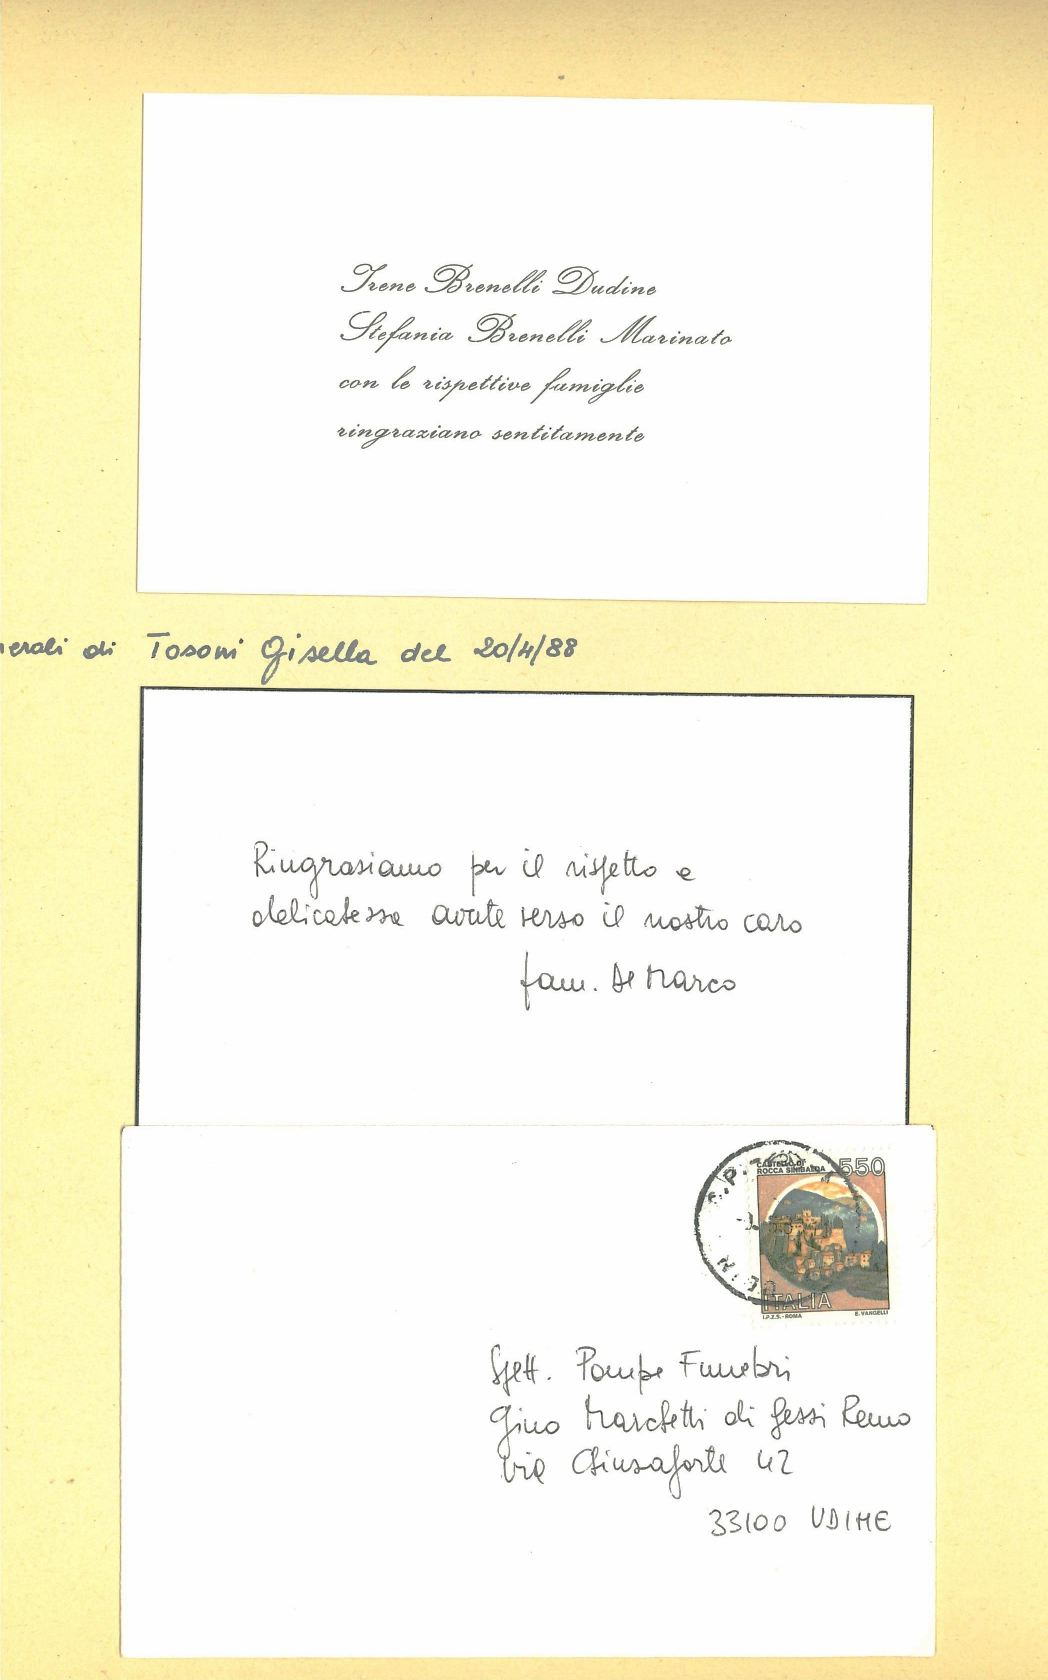 Irene Brenelli Dudine
Stefania Brenelli Marinato
con le rispettive famiglie
ringraziano sentitamente
nerali di Tosoni Gisella del 20/4/88
Ringraziamo per il rispetto e
delicatezza avute verso il nostro caro
fam. De Marco
CASTELLO DI
ROCCA SINIBALDA
550
ITALIA
I.P.Z.S. - ROMA E. VANGELLI
Spett. Pompe Funebri
Gino Marchetti di Gessi Remo
via Chiusaforte 42
33100 UDINE